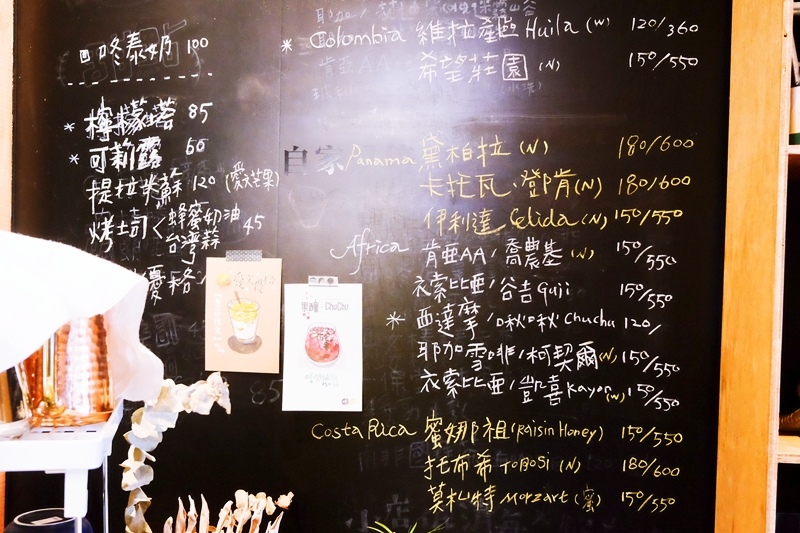 咚泰奶 100
* 檸檬塔 85
* 可莉露 60
提拉米蘇 120 (愛文芒果)
烤土司 < 蜂蜜奶油 45
台灣蒜
優格
果釀·ChuChu
* Colombia 維拉產區 Huila (W) 120/360
希望莊園 (N) 150/550
自家
Panama 黛柏拉 (N) 180/600
卡托瓦·鄧肯 (N) 180/600
伊利達 Gelida (N) 150/550
Africa 肯亞AA/喬農基 (N) 150/550
衣索比亞/谷吉 Guji 150/550
* 西達摩/啾啾 chuchu 120/
耶加雪啡/柯契爾 (N) 150/550
衣索比亞/凱喜 Kayon (W) 150/550
Costa Rica 蜜娜祖 (Raisin Honey) 150/550
托布希 TOBOSI (N) 180/600
莫札特 Morzart (蜜) 150/550